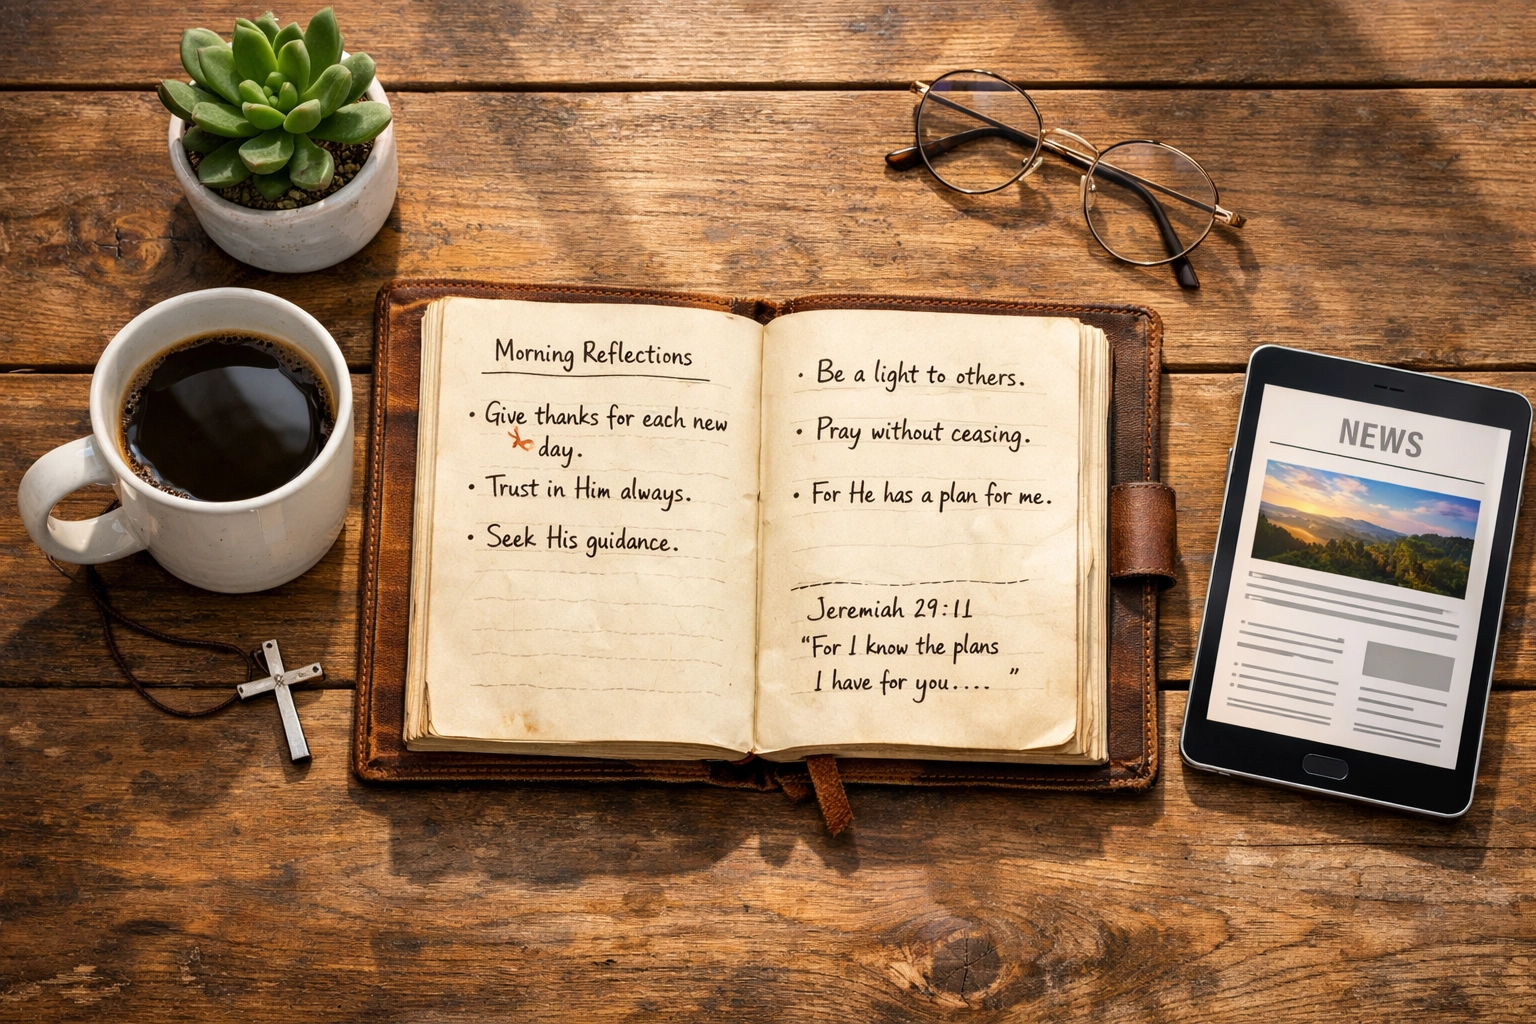 Morning Reflections
• Give thanks for each new
day.
• Trust in Him always.
• Seek His guidance.
• Be a light to others.
• Pray without ceasing.
• For He has a plan for me.
Jeremiah 29:11
“For I know the plans
I have for you.... ”
NEWS